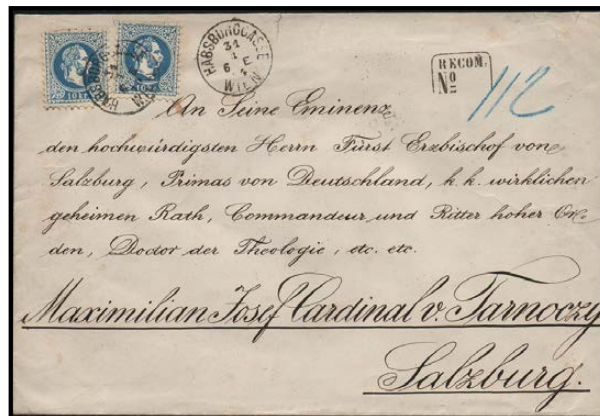 10 KR
HABSBURGGASSE
31
1
6 E
4
WIEN
RECOM.
No
112
An Seine Eminenz
den hochwürdigsten Herrn Fürst Erzbischof von
Salzburg, Primas von Deutschland, k. k. wirklichen
geheimen Rath, Commandeur und Ritter hoher Or-
den, Doctor der Theologie, etc. etc.
Maximilian Josef Cardinal v. Tarnoczy
Salzburg.